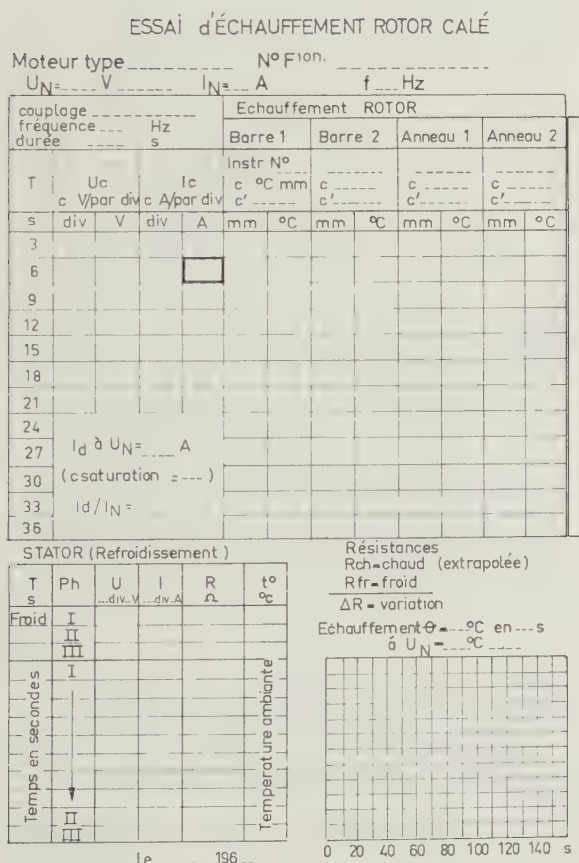 ESSAi d'ÉCHAUFFEMENT ROTOR CALÉ
Moteur type _________ N° Fion. ___________
UN=____V______ IN=__ A f___Hz
couplage __________
fréquence ___ Hz
durée ____ s
Echauffement ROTOR
Barre 1 Barre 2 Anneau 1 Anneau 2
Instr N° ______ ______ ______
T Uc Ic c °C mm c _____ c _____ c _____
c V/par div c A/par div c' _____ c' _____ c' _____ c' _____
s div V div A mm °C mm °C mm °C mm °C
3
6
9
12
15
18
21
24
27
30
33
36
Id à UN=____ A
(csaturation =---)
Id/IN=
STATOR (Refroidissement)
T Ph U I R t°
s ...div..V ...div.A Ω °C
Froid I
II
III
Temps en secondes
I
II
III
Temperature ambiante
Résistances
Rch=chaud (extrapolée)
Rfr=froid
ΔR = variation
Echauffement θ=---°C en---s
á UN=____°C ____
0 20 40 60 80 100 120 140 s
le ______ 196__